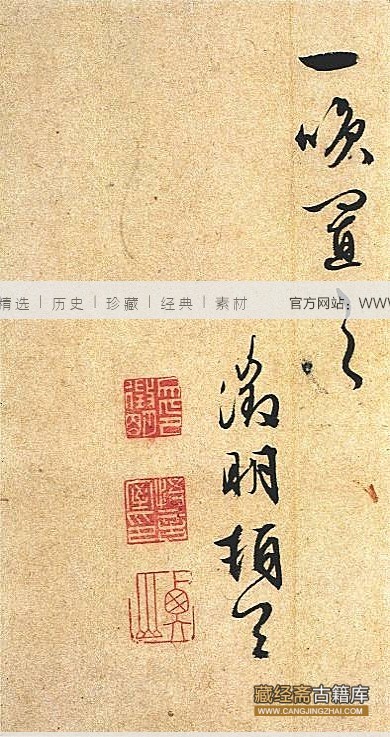 一咲置之
徵明頓首
悟言室印
精选 | 历史 | 珍藏 | 经典 | 素材 官方网站：WWW
藏经斋古籍库
WWW.CANGJINGZHAI.COM